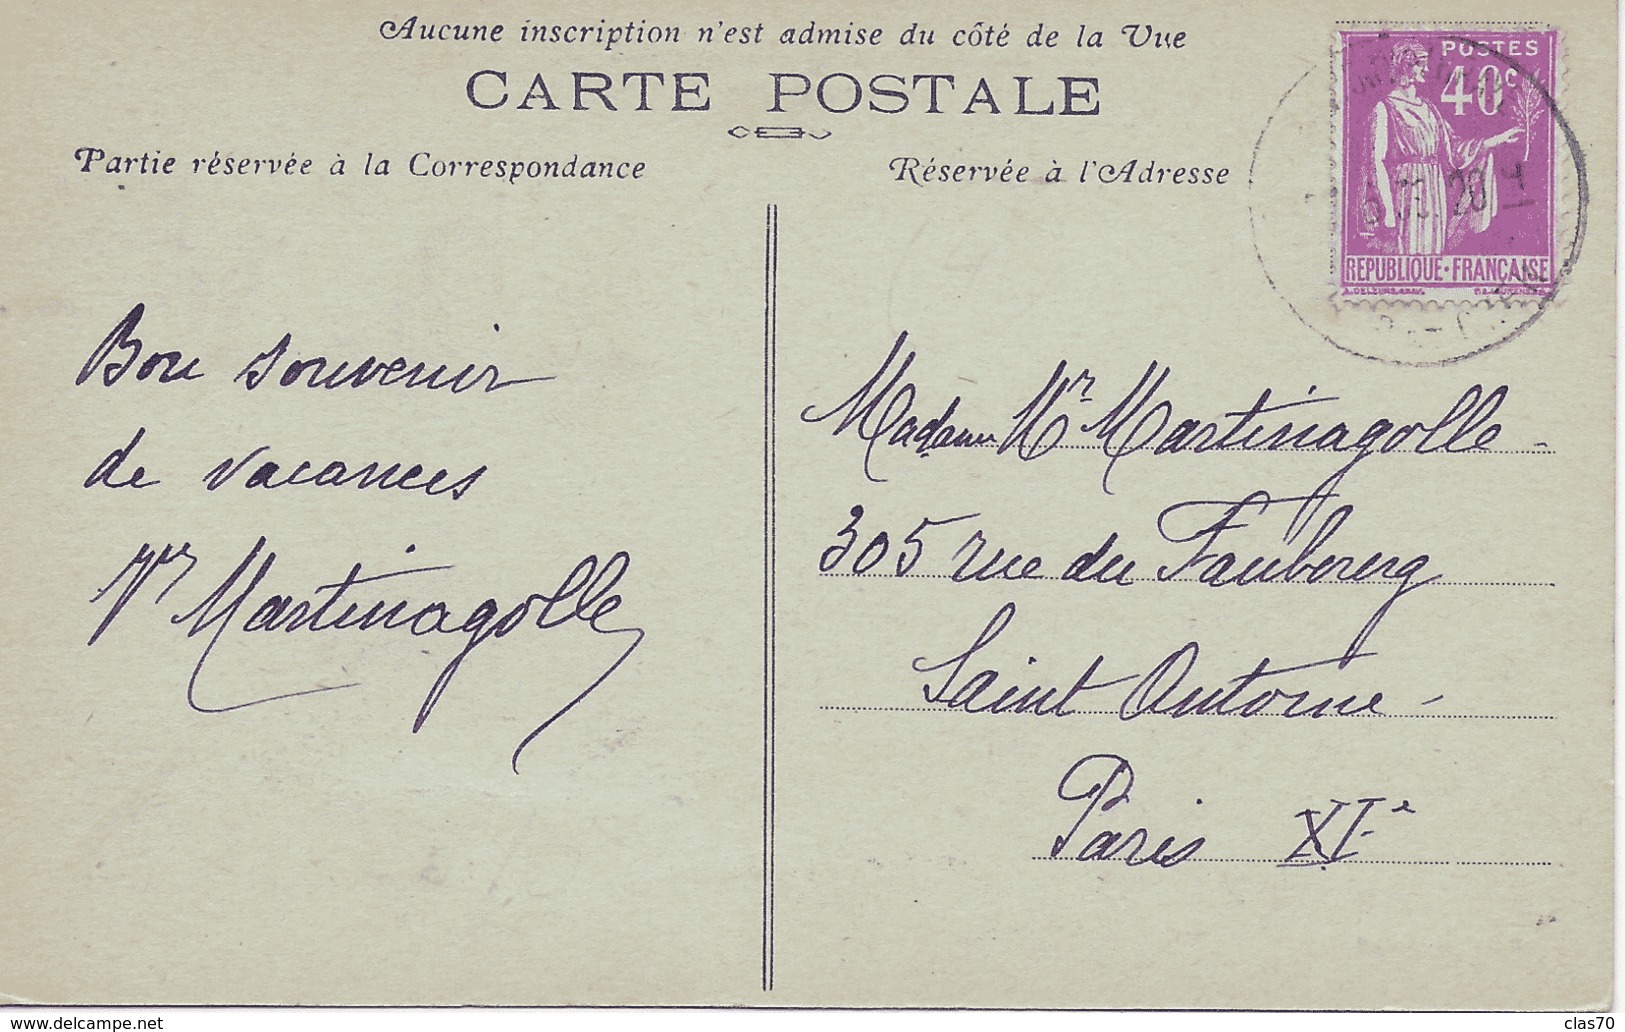 Aucune inscription n'est admise du côté de la Vue
CARTE POSTALE
Partie réservée à la Correspondance
Réservée à l'Adresse
POSTES
40c
REPUBLIQUE·FRANÇAISE
Bon souvenir
de vacances
Martinagolle
Madame Martinagolle
305 rue du Faubourg
Saint Antoine
Paris XIe
www.delcampe.net
clas70